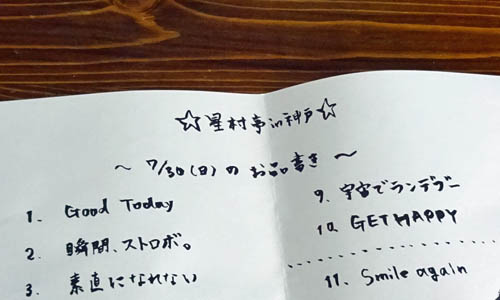 ☆星村亭in神戸☆
～7/30(日)のお品書き～
1. Good Today
2. 瞬間、ストロボ。
3. 素直になれない
9. 宇宙でランデブー
10. GET HAPPY
11. Smile again